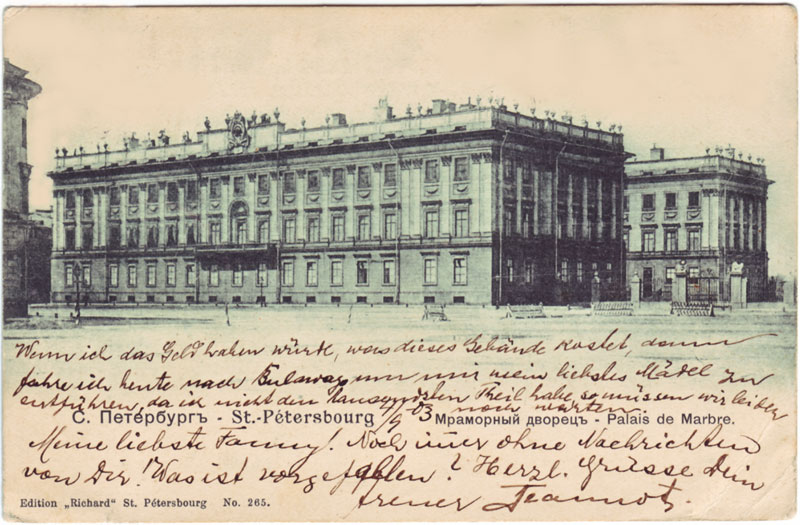 Wenn ich das Geld haben würde, was dieses Gebäude kostet, dann
führe ich heute nach Bulaway um nur mein liebstes Mädel zu
entführen, da ich nicht den tausendsten Theil habe, so müssen wir leider
noch warten.
С. Петербургъ - St.-Pétersbourg /9 03 Мраморный дворецъ - Palais de Marbre.
Meine liebste Fanny! Noch imer ohne Nachrichten
von Dir! Was ist vorgefallen? Herzl. Grüsse Dein
treuer Jeannot.
Edition „Richard" St. Pétersbourg No. 265.